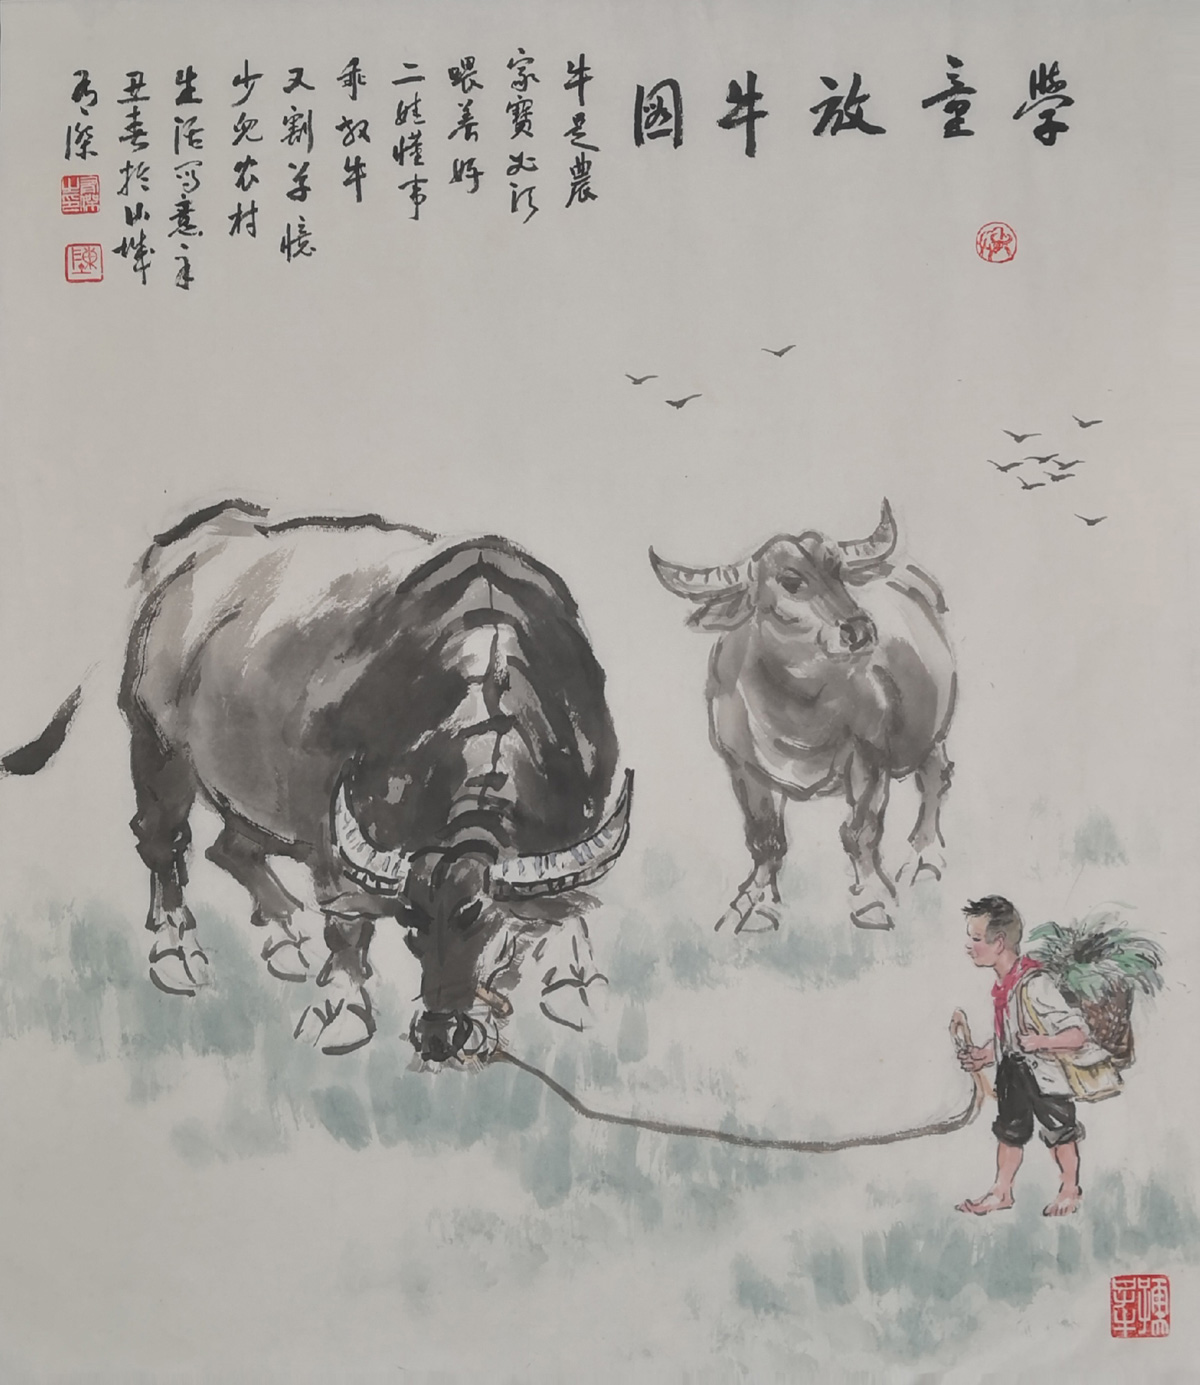 學童放牛圖
牛是農
家寶必須
喂養好
二娃懂事
乖放牛
又割草憶
少兒农村
生活写意辛
丑春於山城
陳